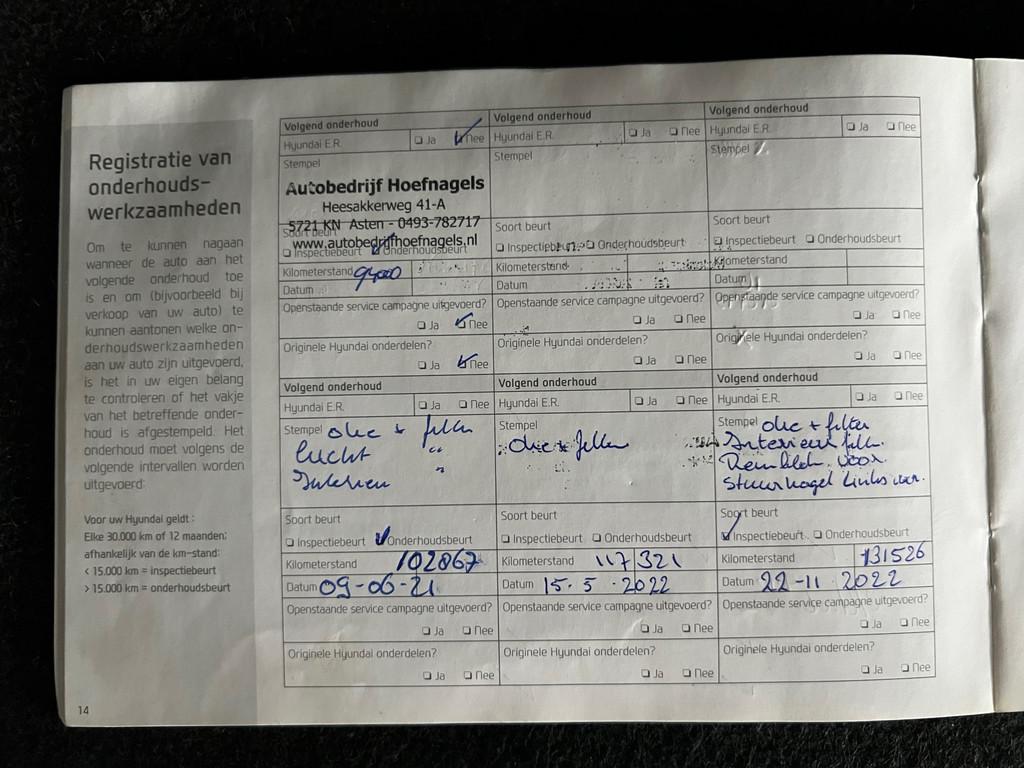 Registratie van
onderhouds-
werkzaamheden
Om te kunnen nagaan
wanneer de auto aan het
volgende onderhoud toe
is en om (bijvoorbeeld bij
verkoop van uw auto) te
kunnen aantonen welke on-
derhoudswerkzaamheden
aan uw auto zijn uitgevoerd,
is het in uw eigen belang
te controleren of het vakje
van het betreffende onder-
houd is afgestempeld. Het
onderhoud moet volgens de
volgende intervallen worden
uitgevoerd:
Voor uw Hyundai geldt :
Elke 30.000 km of 12 maanden;
afhankelijk van de km-stand:
< 15.000 km = inspectiebeurt
> 15.000 km = onderhoudsbeurt
14
Volgend onderhoud
Hyundai E.R. Ja Nee
Stempel
Autobedrijf Hoefnagels
Heesakkerweg 41-A
5721 KN Asten - 0493-782717
www.autobedrijfhoefnagels.nl
Soort beurt
Inspectiebeurt Onderhoudsbeurt
Kilometerstand 94000
Datum
Openstaande service campagne uitgevoerd?
Ja Nee
Originele Hyundai onderdelen?
Ja Nee
Volgend onderhoud
Hyundai E.R. Ja Nee
Stempel
Soort beurt
Inspectiebeurt Onderhoudsbeurt
Kilometerstand
Datum
Openstaande service campagne uitgevoerd?
Ja Nee
Originele Hyundai onderdelen?
Ja Nee
Volgend onderhoud
Hyundai E.R. Ja Nee
Stempel
Soort beurt
Inspectiebeurt Onderhoudsbeurt
Kilometerstand
Datum
Openstaande service campagne uitgevoerd?
Ja Nee
Originele Hyundai onderdelen?
Ja Nee
Volgend onderhoud
Hyundai E.R. Ja Nee
Stempel olie + filter
lucht "
Interieur "
Soort beurt
Inspectiebeurt Onderhoudsbeurt
Kilometerstand 102867
Datum 09-06-21
Openstaande service campagne uitgevoerd?
Ja Nee
Originele Hyundai onderdelen?
Ja Nee
Volgend onderhoud
Hyundai E.R. Ja Nee
Stempel
olie + filter
Soort beurt
Inspectiebeurt Onderhoudsbeurt
Kilometerstand 117321
Datum 15-5-2022
Openstaande service campagne uitgevoerd?
Ja Nee
Originele Hyundai onderdelen?
Ja Nee
Volgend onderhoud
Hyundai E.R. Ja Nee
Stempel olie + filter
Interieur filter
Remblok. voor.
Stuurkogel Links voor.
Soort beurt
Inspectiebeurt Onderhoudsbeurt
Kilometerstand 131526
Datum 22-11 2022
Openstaande service campagne uitgevoerd?
Ja Nee
Originele Hyundai onderdelen?
Ja Nee